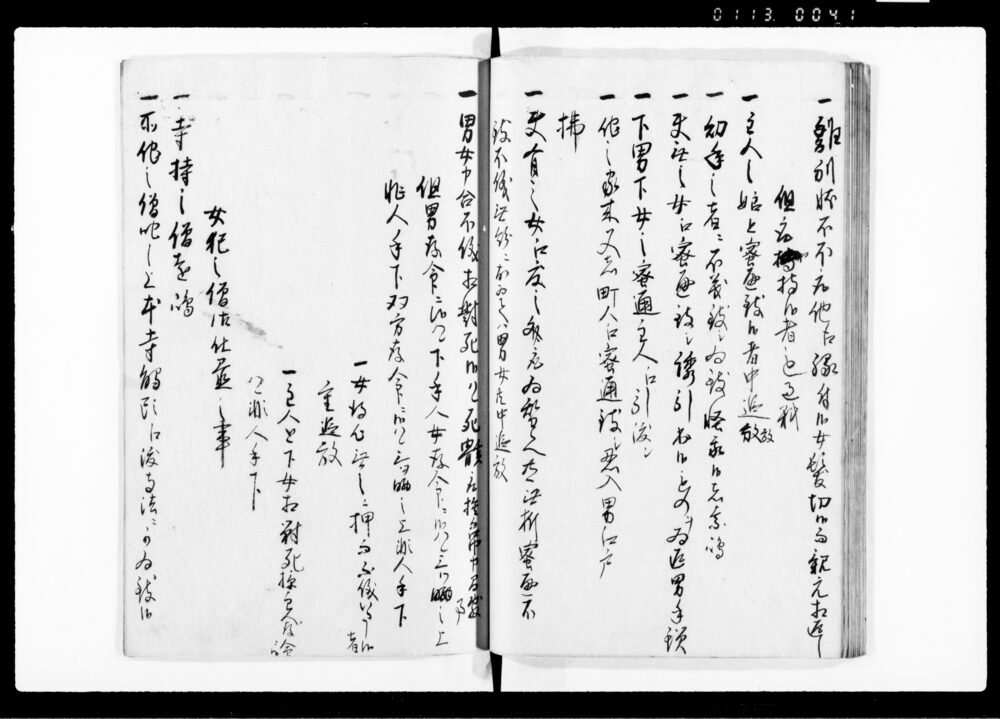 0113.0041
一 離別状不取他江縁付候女髪切候而親元相返し
但右持候者ハ過料
一 主人之娘と密通致候者中追放
一 幼年之者ニ不義致シ為致怪我候者遠嶋
一 夫無之女江密通致シ誘引出候もの女ハ為返男手鎖
一 下男下女之密通主人江引渡シ
一 他之家来又者町人江密通致忍入男江戸
払
一 夫有之女江度之為
男女共中追放
一 男女申合不儀相対死候ハ死骸取捨為弔申間敷
但男存命ニ候ハ下手人女存命ニ候ハ三日晒之上
非人手下双方存命ニ候ハ三日晒之上非人手下
一 女得心無之ニ押而不儀いたし候者
重追放
一 主人と下女相対死損主人存命
候ハ非人手下
女犯之僧御仕置之事
一 寺持之僧遠嶋
一 所化之僧晒之上本寺触頭江渡寺法ニ可為致候